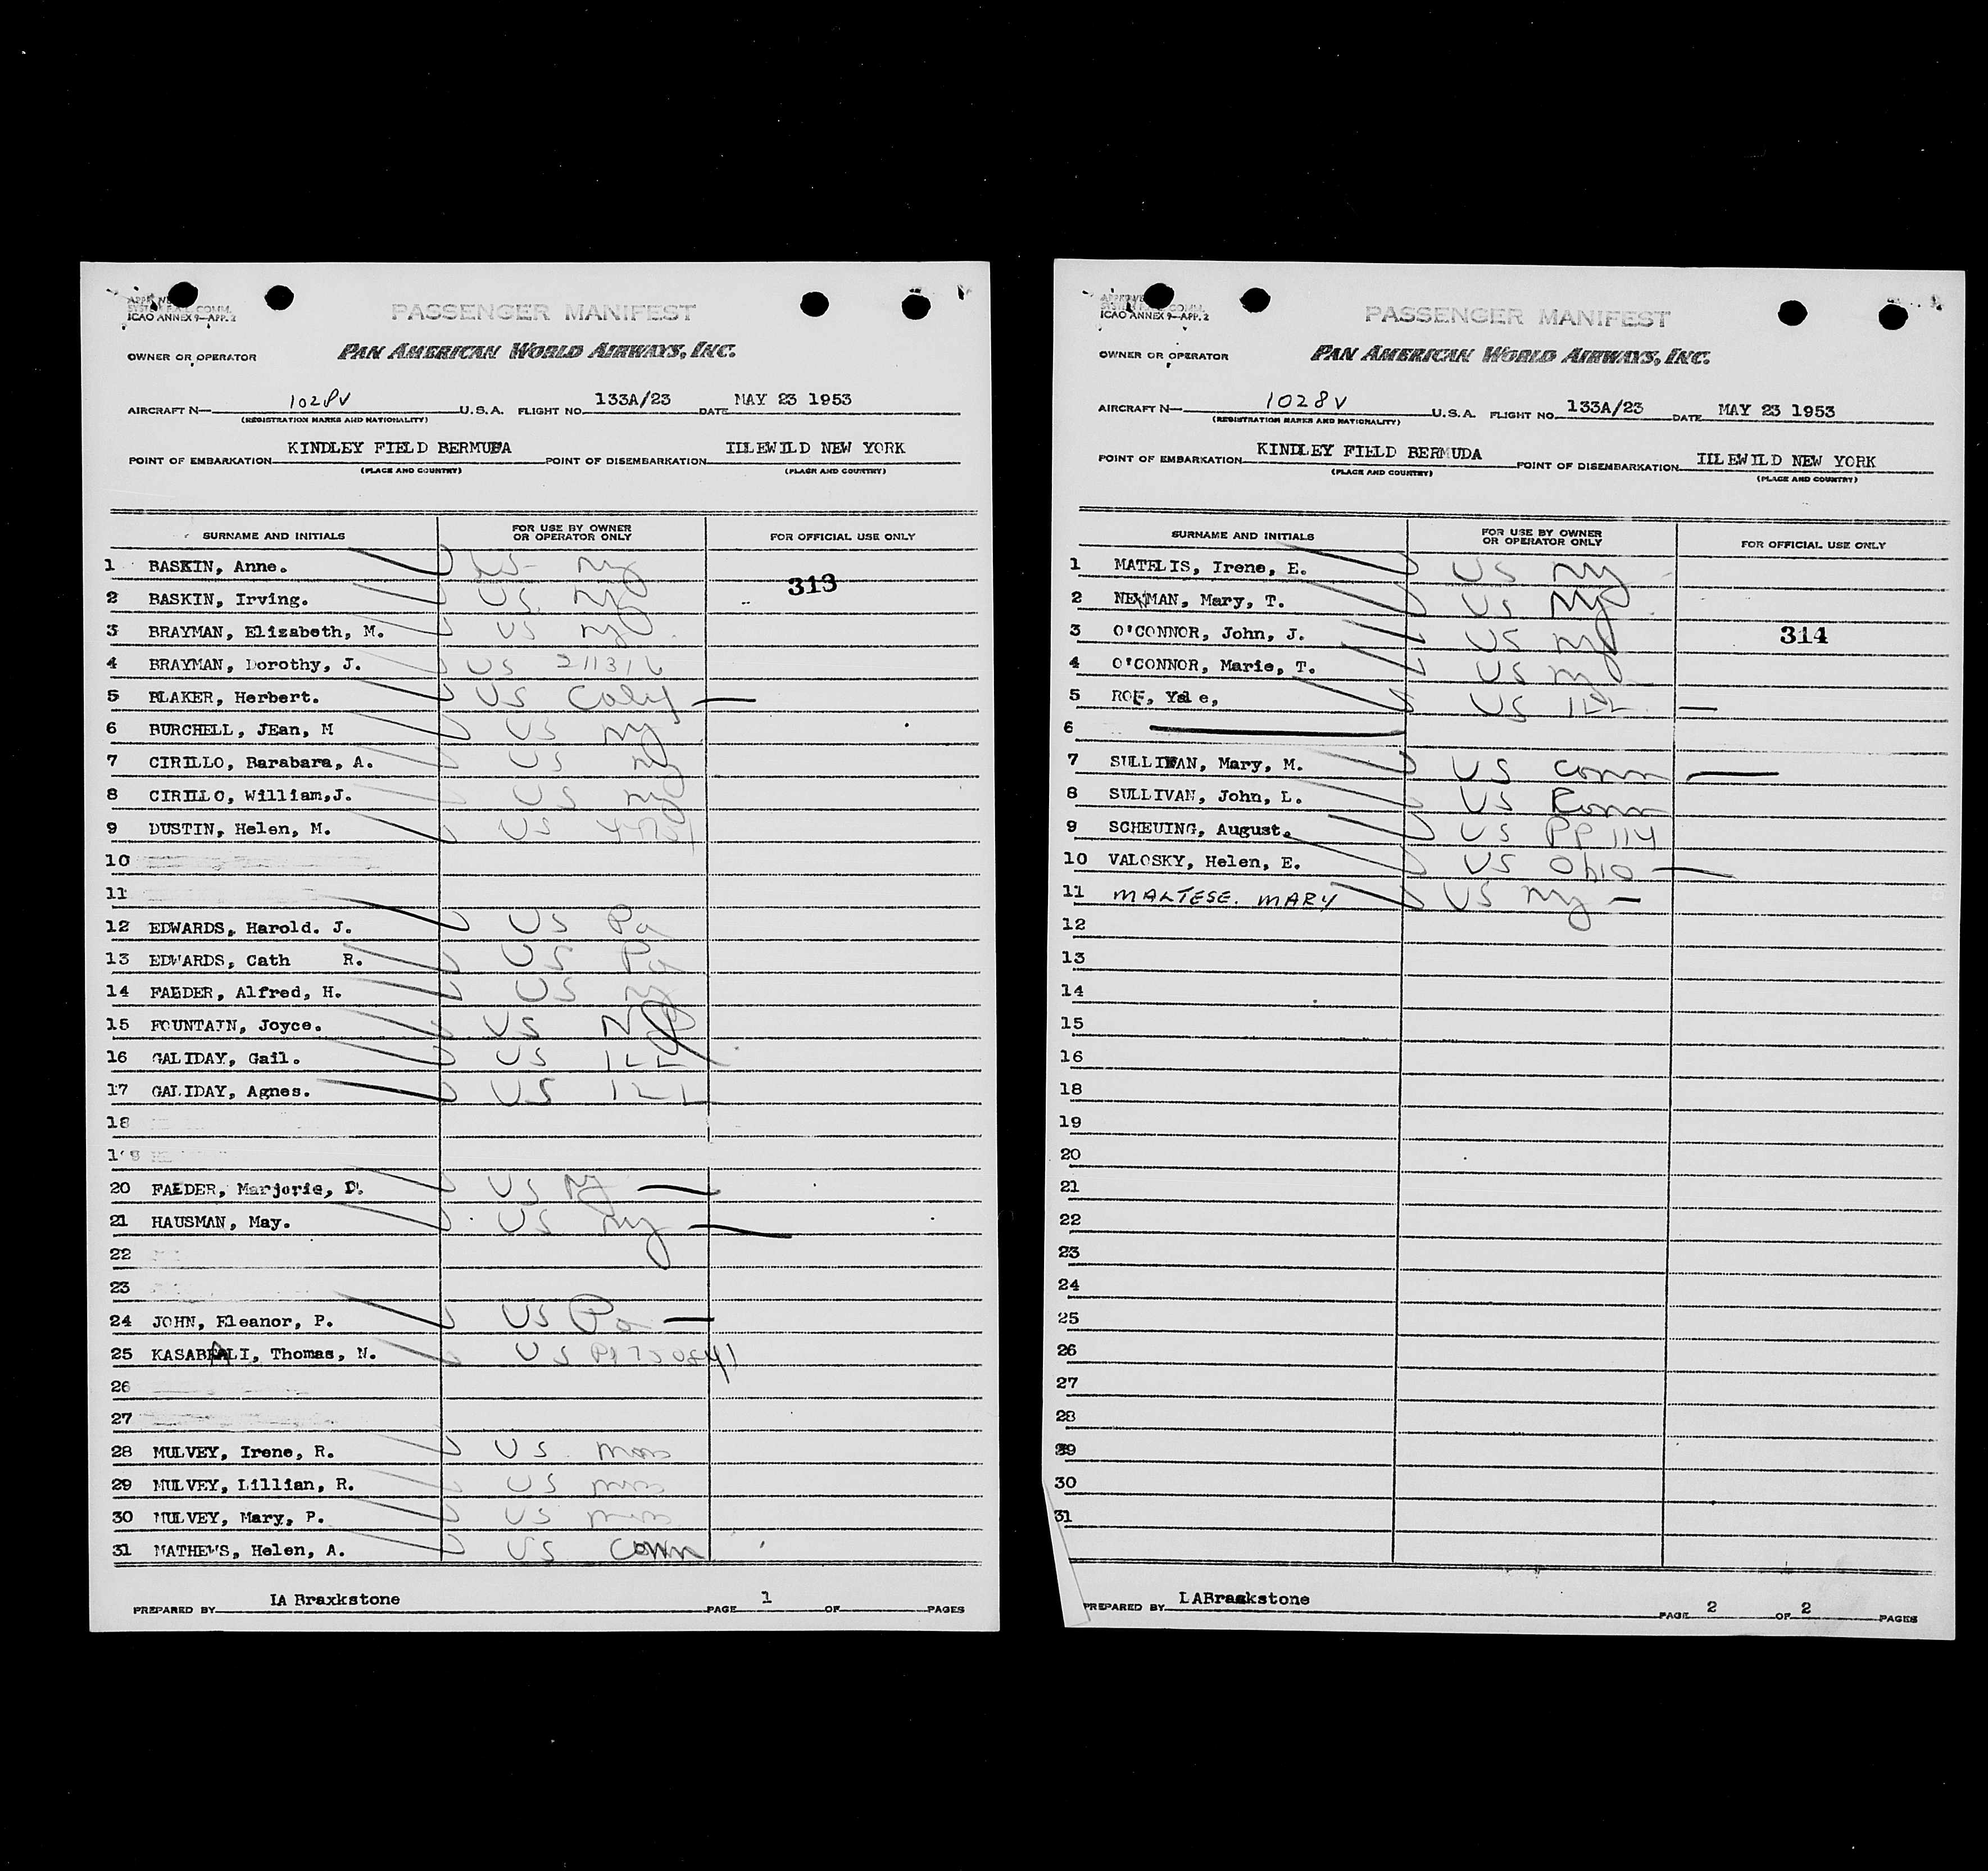 ICAO ANNEX 9—APP. 2
PASSENGER MANIFEST
OWNER OR OPERATOR PAN AMERICAN WORLD AIRWAYS, INC.
AIRCRAFT N— 1028V U.S.A. FLIGHT NO. 133A/23 DATE MAY 23 1953
(REGISTRATION MARKS AND NATIONALITY)
POINT OF EMBARKATION KINDLEY FIELD BERMUDA POINT OF DISEMBARKATION IDLEWILD NEW YORK
(PLACE AND COUNTRY) (PLACE AND COUNTRY)
SURNAME AND INITIALS FOR USE BY OWNER OR OPERATOR ONLY FOR OFFICIAL USE ONLY
1 BASKIN, Anne. US ny
313
2 BASKIN, Irving. US ny
3 BRAYMAN, Elizabeth, M. US ny
4 BRAYMAN, Dorothy, J. US 211316
5 BLAKER, Herbert. US Calif —
6 BURCHELL, JEan, M US ny
7 CIRILLO, Barabara, A. US ny
8 CIRILLO, William,J. US ny
9 DUSTIN, Helen, M. US
10
11
12 EDWARDS, Harold. J. US Pa
13 EDWARDS, Cath R. US Pa
14 FAEDER, Alfred, H. US ny
15 FOUNTAIN, Joyce. US NY
16 GALIDAY, Gail. US ILL
17 GALIDAY, Agnes. US ILL
18
19
20 FAEDER, Marjorie, D. US ny —
21 HAUSMAN, May. US ny —
22
23
24 JOHN, Eleanor, P. US Pa —
25 KASABALI, Thomas, N. US PP
26
27
28 MULVEY, Irene, R. US mass
29 MULVEY, Lillian, R. US mass
30 MULVEY, Mary, P. US mass
31 MATHEWS, Helen, A. US Conn
PREPARED BY LA Braxkstone PAGE 1 OF PAGES
ICAO ANNEX 9—APP. 2
PASSENGER MANIFEST
OWNER OR OPERATOR PAN AMERICAN WORLD AIRWAYS, INC.
AIRCRAFT N— 1028V U.S.A. FLIGHT NO. 133A/23 DATE MAY 23 1953
(REGISTRATION MARKS AND NATIONALITY)
POINT OF EMBARKATION KINDLEY FIELD BERMUDA POINT OF DISEMBARKATION IDLEWILD NEW YORK
(PLACE AND COUNTRY) (PLACE AND COUNTRY)
SURNAME AND INITIALS FOR USE BY OWNER OR OPERATOR ONLY FOR OFFICIAL USE ONLY
1 MATELIS, Irene, E. US ny
2 NEWMAN, Mary, T. US NY
3 O'CONNOR, John, J. US ny 314
4 O'CONNOR, Marie, T. US ny
5 ROE, Yale, US ILL —
6
7 SULLIVAN, Mary, M. US conn —
8 SULLIVAN, John, L. US Conn
9 SCHEUING, August. US PP 114
10 VALOSKY, Helen, E. US Ohio —
11 MALTESE. MARY US ny —
12
13
14
15
16
18
19
20
21
22
23
24
25
26
27
28
29
30
31
PREPARED BY LABraakstone PAGE 2 OF 2 PAGES